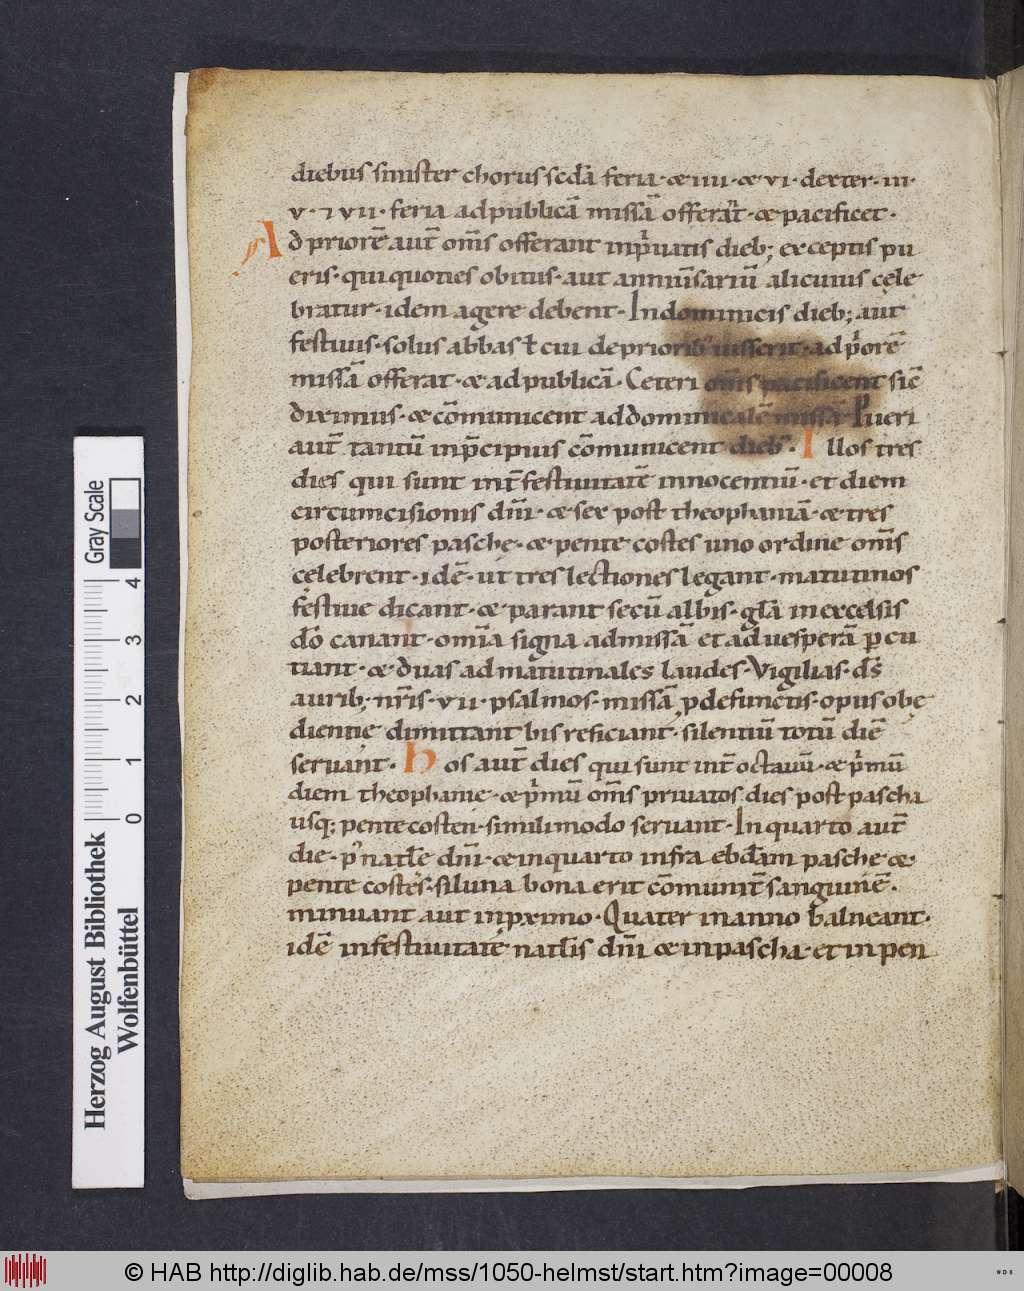 diebus sinister chorus scd̄a feria · æ iiii · æ vi · dexter · iii ·
v · ⁊ vii · feria ad publicā missā offerat̄ · æ pacificet ·
Ad priorē aut̄ om̄s offerant inpͥuatis dieb; exceptis pu
eris · qui quoties obitus · aut anniu̅sariū alicuius cęle
bratur · idem agere debent · In dominicis dieb; aut
festiuis · solus abbas ł cui de priorib; iusserit · ad pͥorē
missā offerat · æ ad publicā · Ceteri om̄s pacificent sic̄
diximus · æ cōmunicent ad dominicalē missā Pueri
aut̄ tantū inp̄cipuis cōmunicent dieb; · Illos tres
dies qui sunt int̄ festiuitatē innocentiū · et diem
circumcisionis dn̄i · æ sex post theophaniā · æ tres
posteriores pasche · æ pentecostes uno ordine om̄s
cęlebrent · idē · ut tres lectiones legant · matutinos
festiue dicant · æ parant secū albis · gl̄a in excelsis
dō canant · omīa signa ad missā et ad uesperā ꝑcu
tiant · æ duas ad matutinales laudes · Vigilias · dš
aurib; nr̄is · vii · psalmos · missā ꝓ defunctis · opus obę
dientie dimittant bis reficiant · silentiū totū diē
seruant · Hos aut̄ dies qui sunt int̄ octauū · æ pͥmū
diem theophanie · æ pͥmū om̄s priuatos dies post pascha
usq; pentecosten · simili modo seruant · In quarto aut̄
die · p' natl̄e dn̄i · æ in quarto infra ebd̄am pasche æ
pentecostes · si luna bona erit cōmunit̄ sanguinē ·
minuant aut inpximo · Quater in anno balneant ·
idē in festiuitate natl̄is dn̄i æ in pascha · et in pen
Herzog August Bibliothek
Wolfenbüttel
Gray Scale
0 1 2 3 4
© HAB http://diglib.hab.de/mss/1050-helmst/start.htm?image=00008